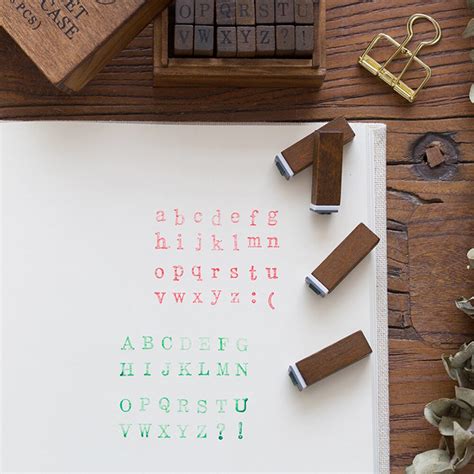 ET
CASE
PCS)
OPQRSTU
VWXYZ?!
abcdefg
hijklmn
opqrstu
vwxyz:(
ABCDEFG
HIJKLMN
OPQRSTU
VWXYZ?!